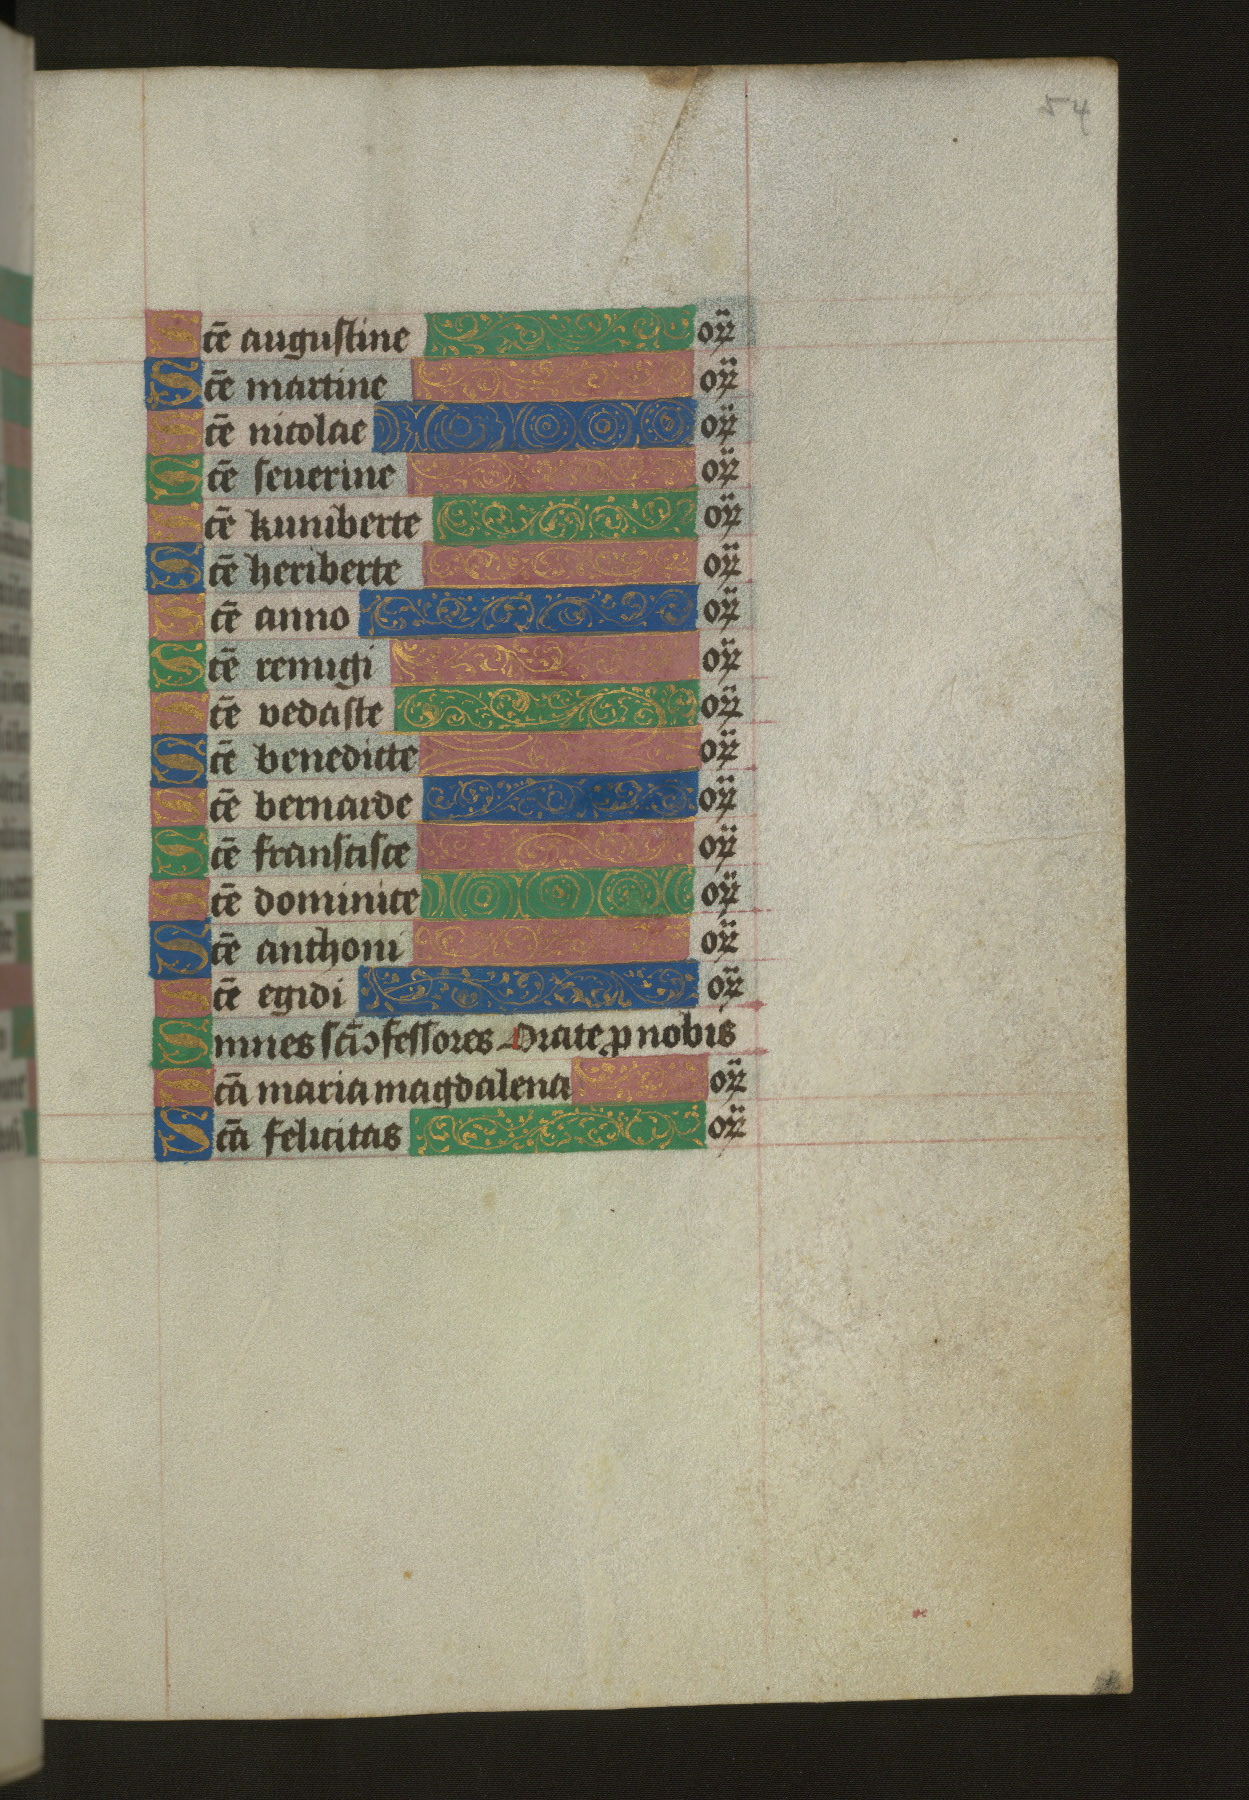 54
Scē augustine or̄
Scē martine or̄
Scē nicolae or̄
Scē seuerine or̄
Scē kuniberte or̄
Scē heriberte or̄
Scē anno or̄
Scē remigi or̄
Scē vedaste or̄
Scē benedicte or̄
Scē bernarde or̄
Scē franscisce or̄
Scē dominice or̄
Scē anthoni or̄
Scē egidi or̄
Smnes scī ↄfessores Orate p nobis
Scā maria magdalena or̄
Scā felicitas or̄